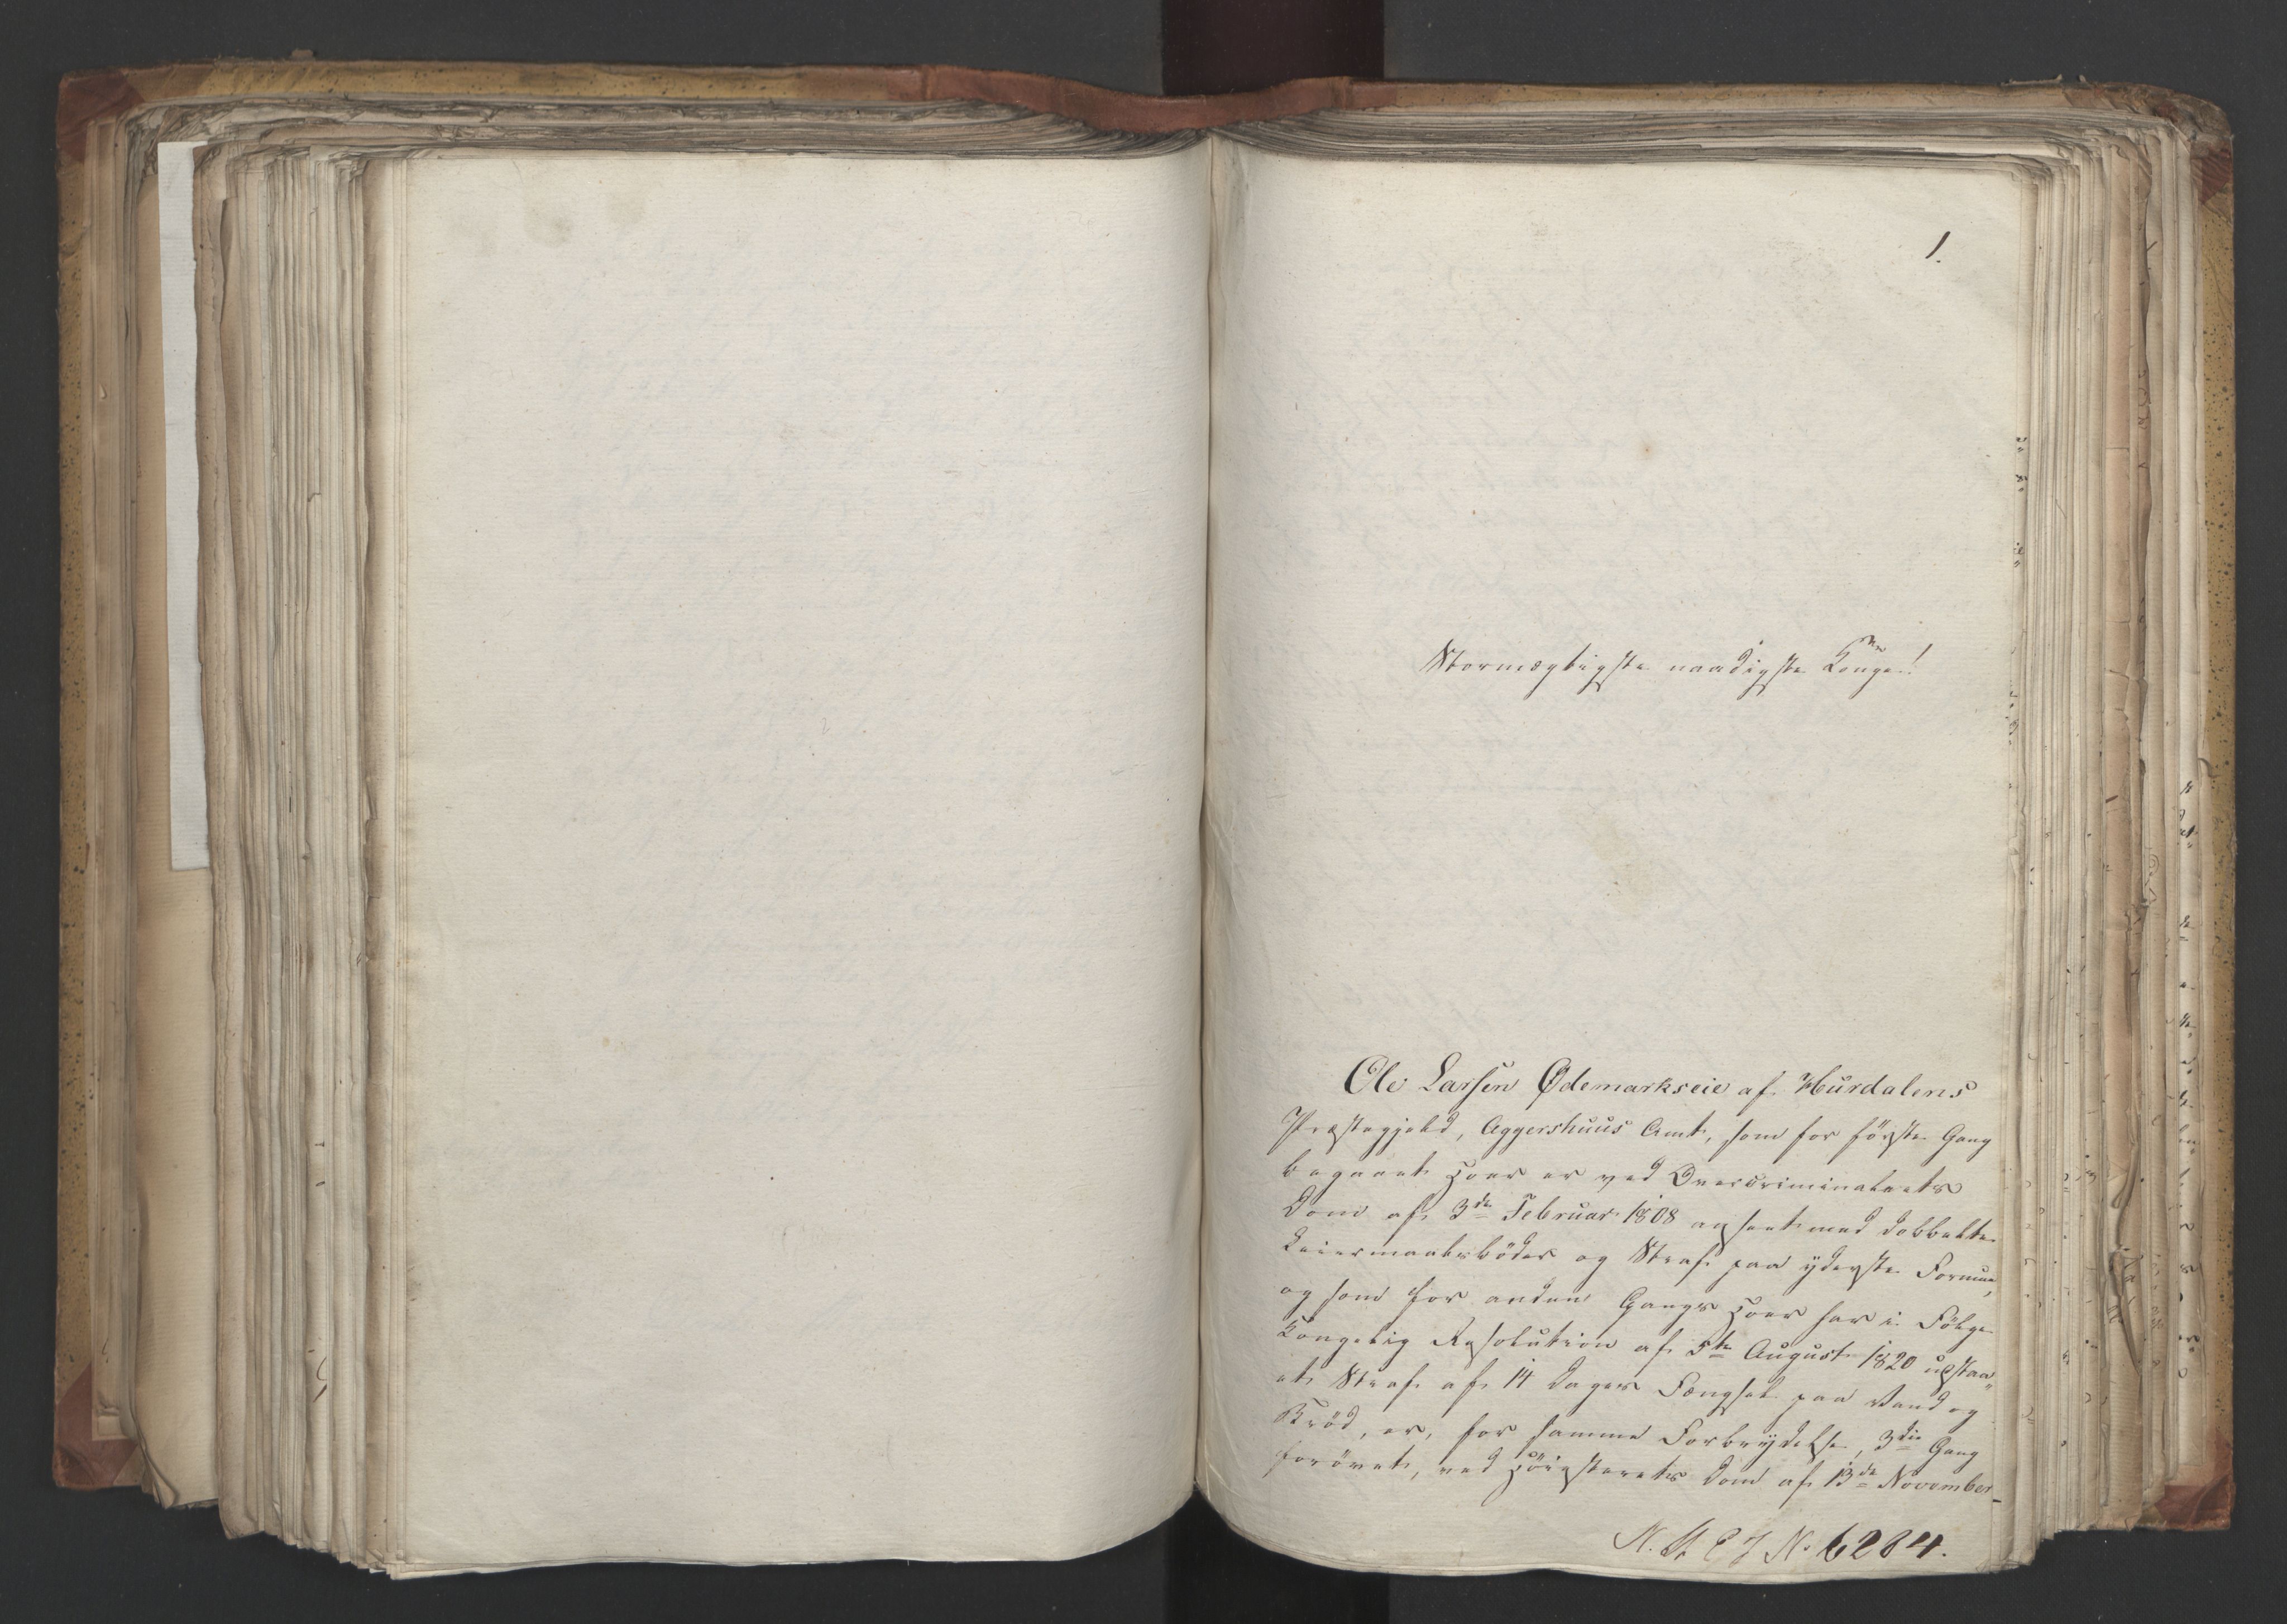 1.
Stormægtigste naadigste Konge!
Ole Larsen Ødemarkseie af Hurdalens
Præstegjeld, Aggershuus Amt, som for förste Gang
begaaet Hoer er ved Overcriminalrets
Dom af 3de Februar 1808 anseet med dobbelte
Leiermaalsböder og Straf paa yderste Formue,
og som for anden Gangs Hoer har i Fölge
Kongelig Resolution af 5te August 1820 udstaa-
et Straf af 14 Dages Fængsel paa Vand og
Bröd, er, for samme Forbrydelse, 3die Gang
forövet, ved Höiesterets Dom af 13de November
N. 6284.